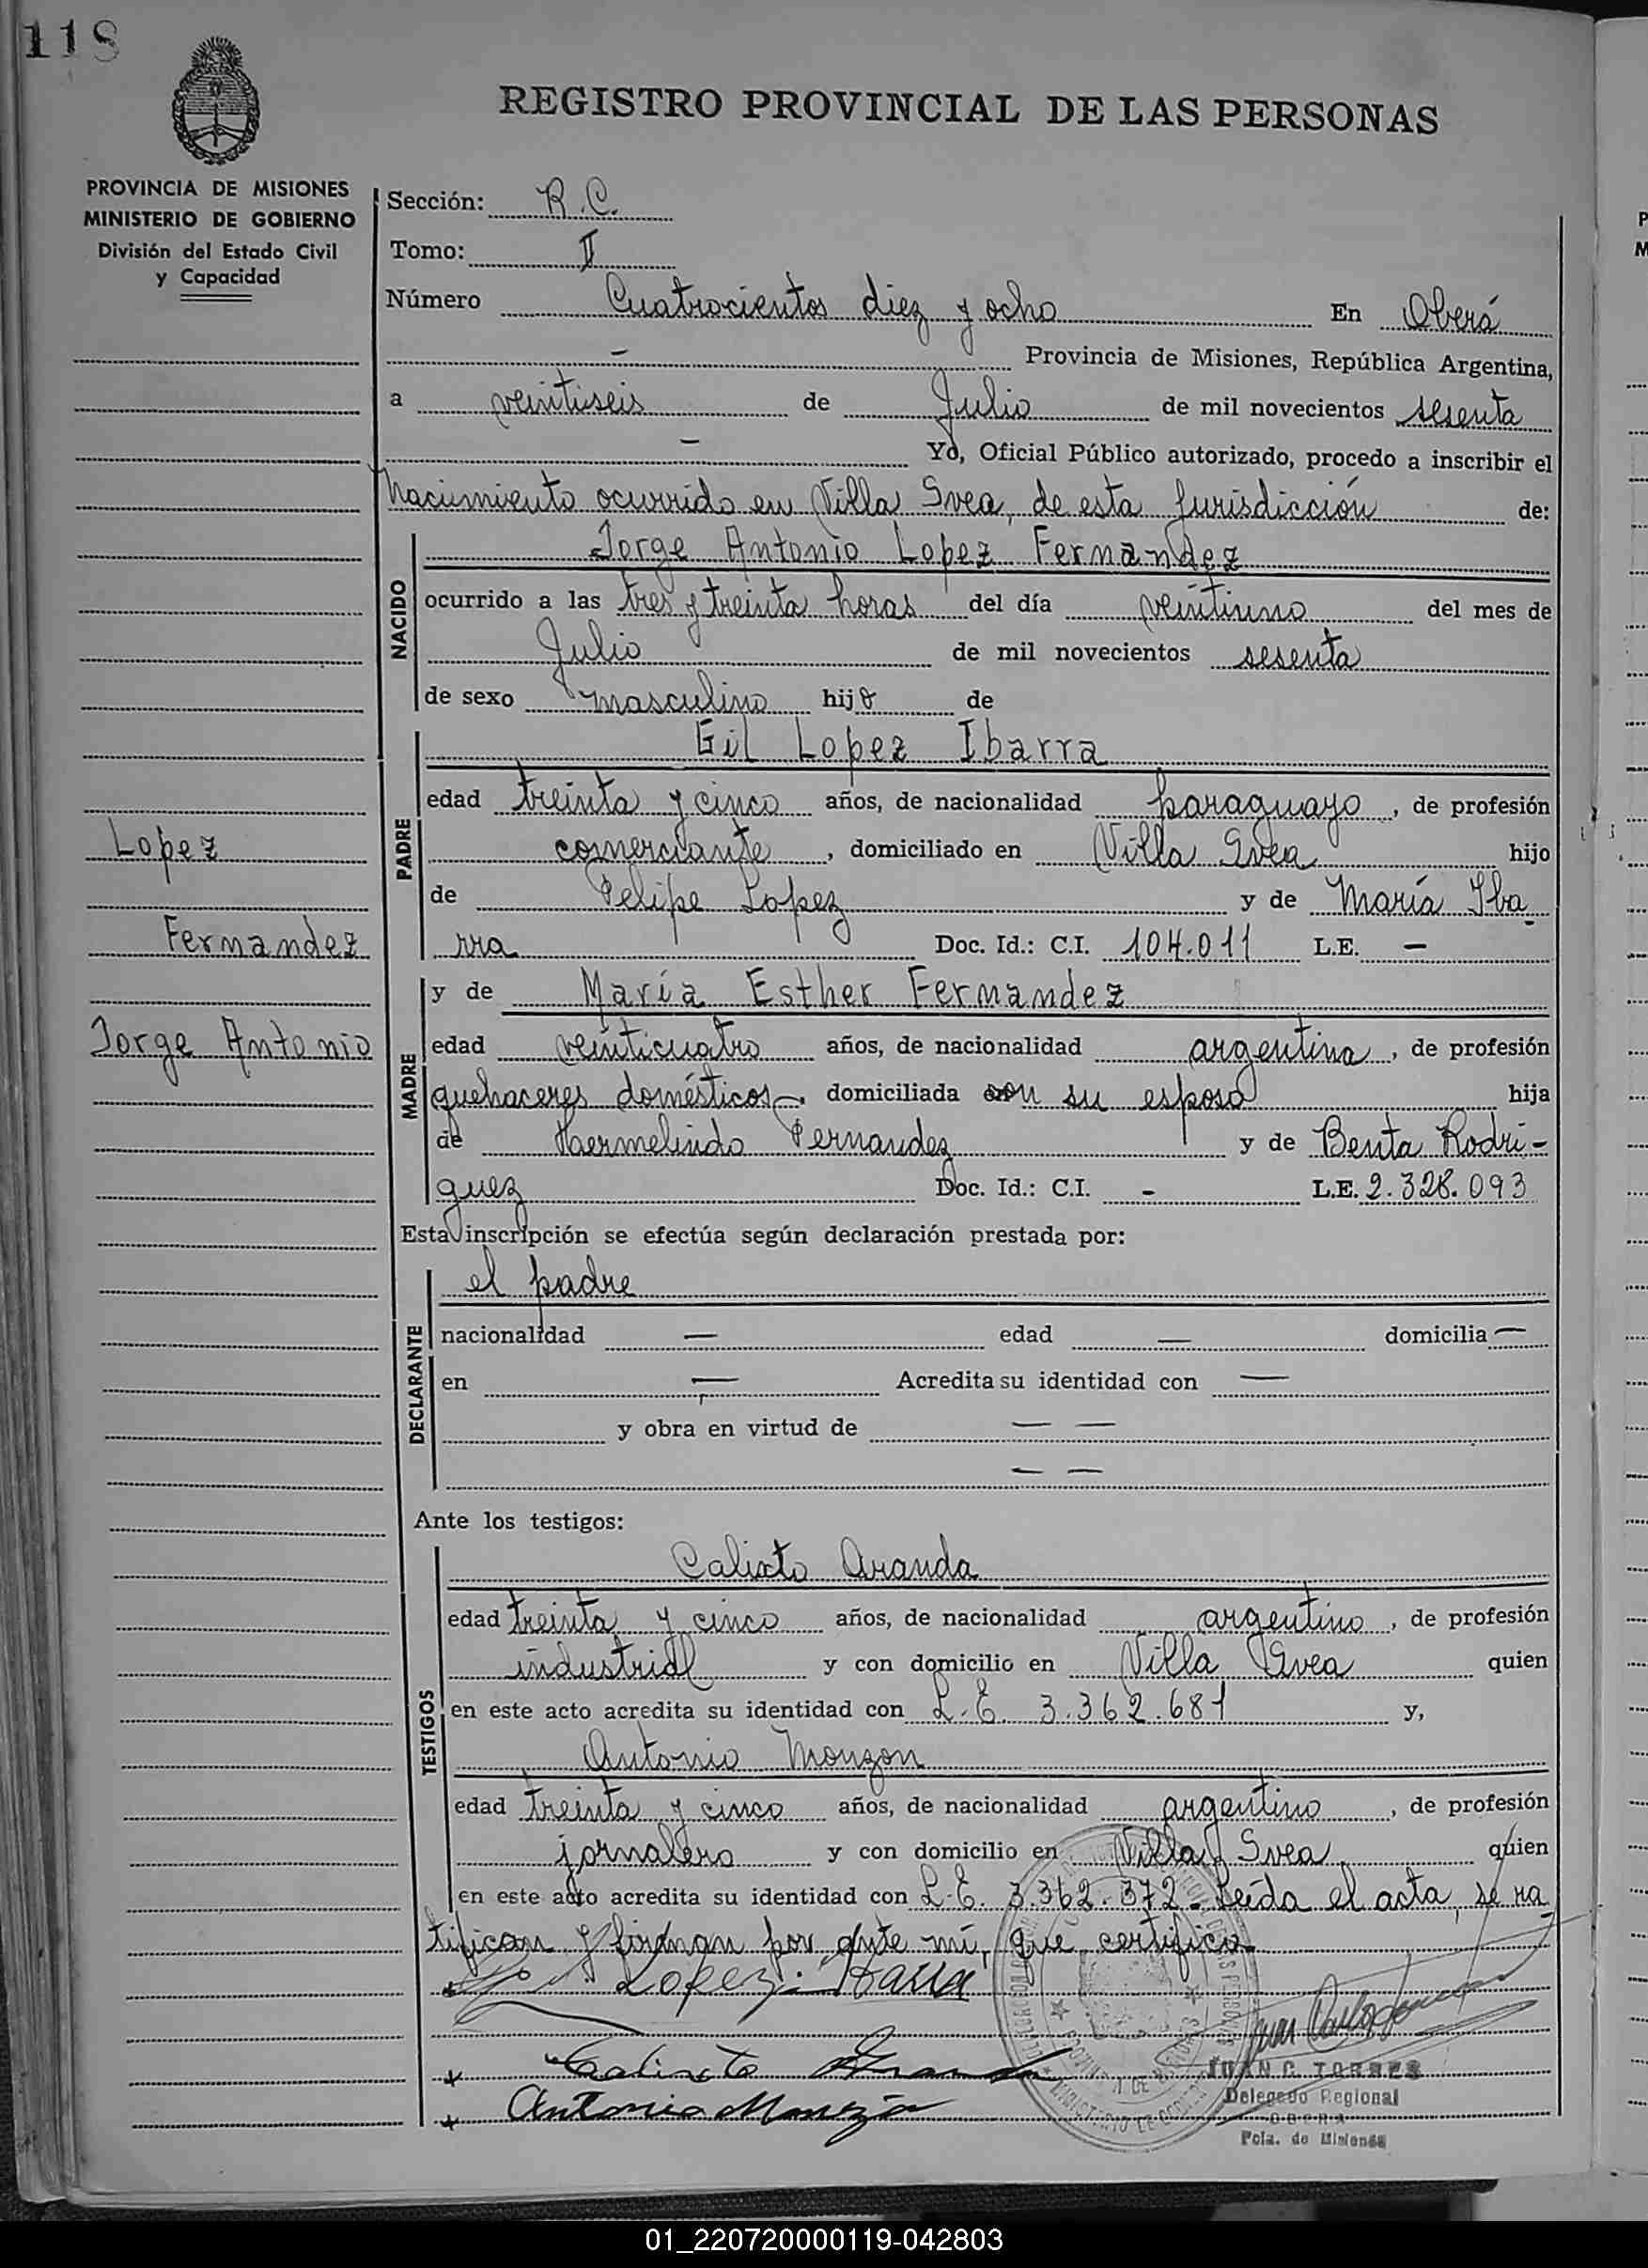 118
REGISTRO PROVINCIAL DE LAS PERSONAS
PROVINCIA DE MISIONES
MINISTERIO DE GOBIERNO
División del Estado Civil
y Capacidad
Sección: R.C.
Tomo: II
Número Cuatrocientos diez y ocho En Oberá
— Provincia de Misiones, República Argentina,
a veintiseis de Julio de mil novecientos sesenta
— Yo, Oficial Público autorizado, procedo a inscribir el
Nacimiento ocurrido en Villa Svea, de esta Jurisdicción de:
NACIDO
Jorge Antonio Lopez Fernandez
ocurrido a las tres y treinta horas del día veintiuno del mes de
Julio de mil novecientos sesenta
de sexo masculino hijo de
PADRE
Gil Lopez Ibarra
edad treinta y cinco años, de nacionalidad paraguayo, de profesión
comerciante, domiciliado en Villa Svea hijo
de Felipe Lopez y de María Iba
rra Doc. Id.: C.I. 104.011 L.E. —
Lopez
Fernandez
Jorge Antonio
MADRE
y de María Esther Fernandez
edad veinticuatro años, de nacionalidad argentina, de profesión
quehaceres domésticos, domiciliada con su esposo hija
de Hermelindo Fernandez y de Benta Rodri-
guez Doc. Id.: C.I. - L.E. 2.328.093
Esta inscripción se efectúa según declaración prestada por:
DECLARANTE
el padre
nacionalidad — edad — domicilia —
en — Acredita su identidad con —
y obra en virtud de — —
— —
Ante los testigos:
TESTIGOS
Calixto Aranda
edad treinta y cinco años, de nacionalidad argentino, de profesión
industrial y con domicilio en Villa Svea quien
en este acto acredita su identidad con L.E. 3.362.681 y,
Antonio Monzon
edad treinta y cinco años, de nacionalidad argentino, de profesión
jornalero y con domicilio en Villa Svea quien
en este acto acredita su identidad con L.E. 3.362.372. Leída el acta, se ra
tifican y firman por ante mí, que certifico
Lopez Ibarra
Calixto Aranda
Antonio Monzon
JUAN C. TORRES
Delegado Regional
OBERA
Pcia. de Misiones
01_220720000119-042803